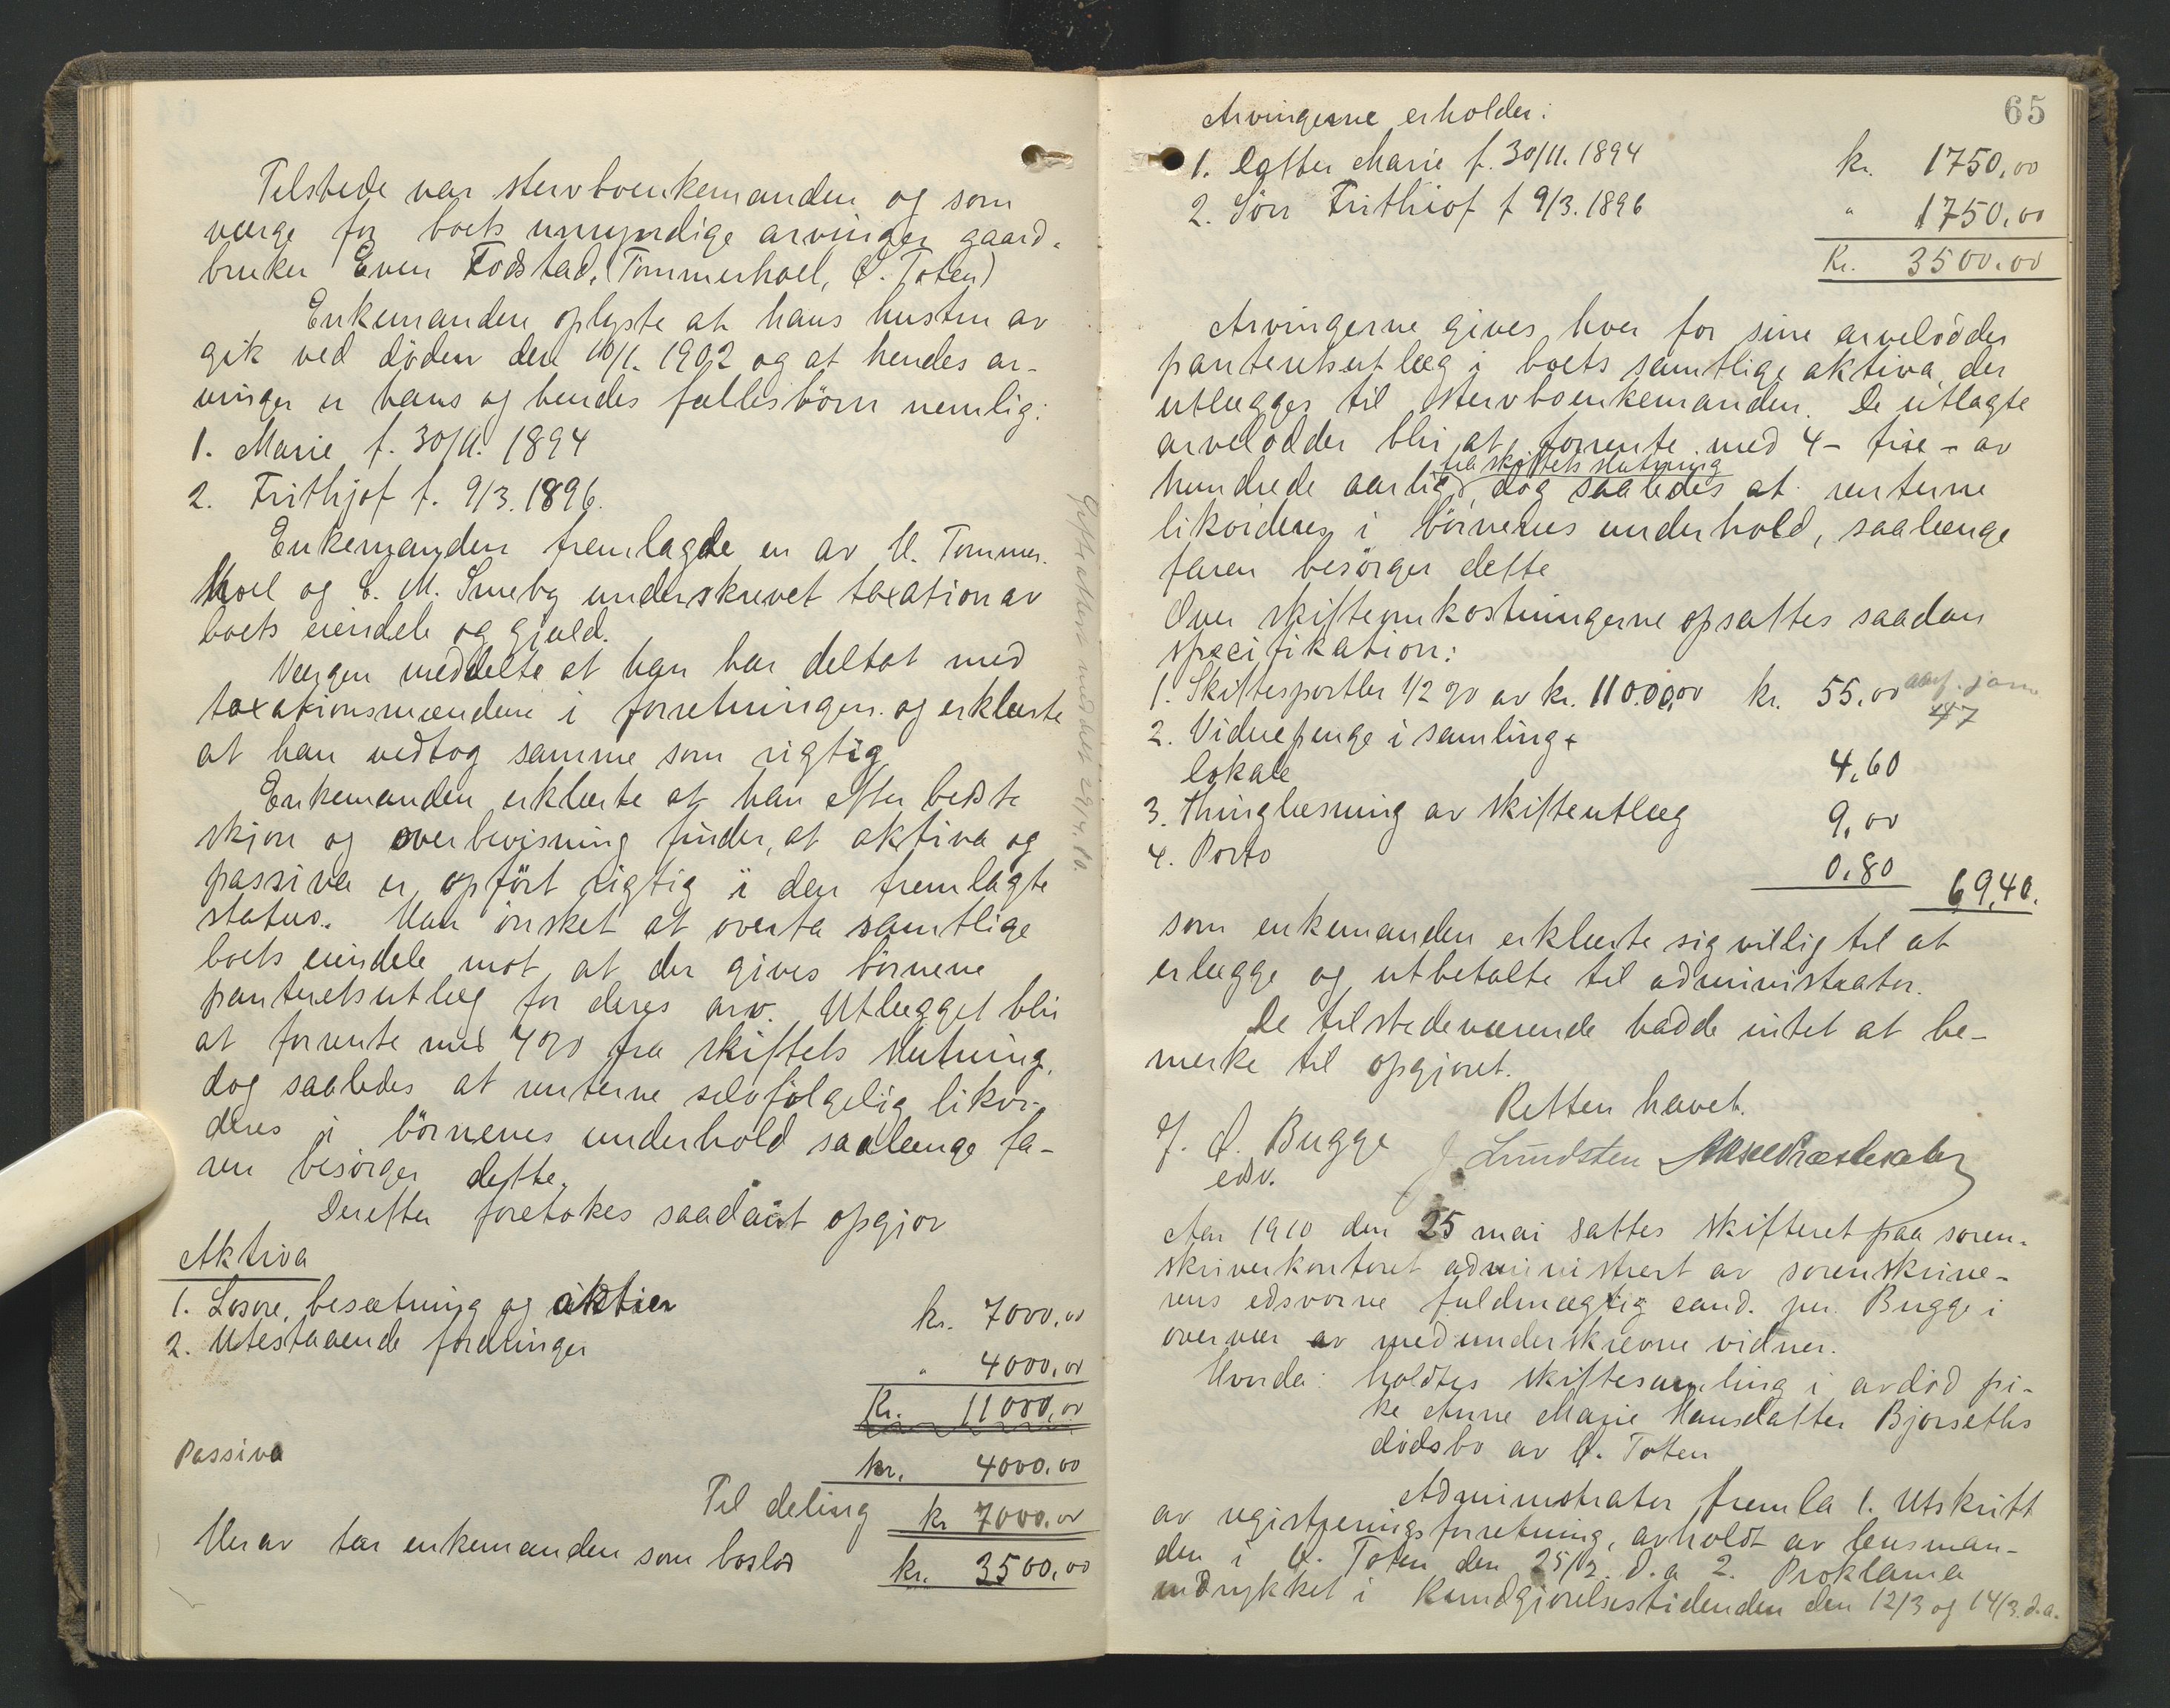 Tilstede var stervboenkemanden og som
verge for boets umyndige arvinger gaard-
bruker Even Fodstad, (Tommerhoel, Ø. Toten)
Enkemanden oplyste at hans hustru av
gik ved døden den 10/1. 1902 og at hendes ar-
vinger er hans og hendes fællesbörn nemlig:
1. Marie f. 30/11. 1894
2. Frithjof f. 9/3. 1896.
Enkemanden fremlagde en av H. Tommer-
hoel og E. M. Smeby underskrevet taxation av
boets eiendele og gjæld.
Vergen meddelte at han har deltat med
taxationsmændene i forretningen og erklærte
at han vedtog samme som rigtig
Enkemanden erklærte at han efter bedste
skjön og overbevisning finder, at aktiva og
passiva er opfört rigtig i den fremlagte
status. Han önsket at overta samtlige
boets eiendele mot at der gives börnene
panteretsutlæg for deres arv. Utlægget blir
at forrente med 4 % fra skiftets slutning,
dog saaledes at renterne selvfölgelig likvi-
deres i börnenes underhold saalænge fa-
ren besörger dette.
Derefter foretokes saadant opgjör
Aktiva
1. Lösöre, besætning og aktier kr. 7000,00
2. Utestaaende fordringer " 4000,00
Kr. 11000,00
Passiva kr. 4000.00
Til deling kr 7000.00
Herav tar enkemanden som boslod kr. 3500,00
65
Arvingerne erholder:
1. Datter Marie f. 30/11. 1894 kr. 1750,00
2. Sön Frithiof f 9/3. 1896 " 1750,00
Kr. 3500.00
Arvingerne gives hver for sine arvelödder
panteretsutlæg i boets samtlige aktiva, der
utlægges til stervboenkemanden. De utlagte
arvelodder blir at forrente med 4 – fire – av
fra skiftets slutning
hundrede aarlig, dog saaledes at renterne
likvideres i börnenes underhold, saalænge
faren besörger dette
Over skifteomkostningerne opsattes saadan
specifikation:
1. Skiftesportler 1/2 % av kr. 11000,00 kr. 55,00
47
2. Vidnepenge i samling +
lokale 4,60
3. Thinglæsning av skifteutlæg 9,00
4. Porto 0,80 69,40.
som enkemanden erklærte sig villig til at
erlægge og utbetalte til administrator.
De tilstedeværende hadde intet at be-
merke til opgjöret.
Retten hævet.
J. A. Bugge J Lundsten
edsv.
Aar 1910 den 25 mai sattes skifteret paa soren-
skriverkontoret administrert av sorenskrive-
rens edsvorne fuldmægtig cand. jur. Bugge i
overvær av medunderskrevne vidner.
Hvorda: holdtes skiftesamling i avdöd pi-
ke Anne Marie Hansdatter Bjørseths
dødsbo av Ø. Toten
Administrator fremla 1. Utskrift
av registreringsforretning, avholdt av lensman-
den i Ø. Toten den 25/2. d.a 2. Proklama
indrykket i Kundgjörelsestidenden den 12/3 og 14/3. d.a.